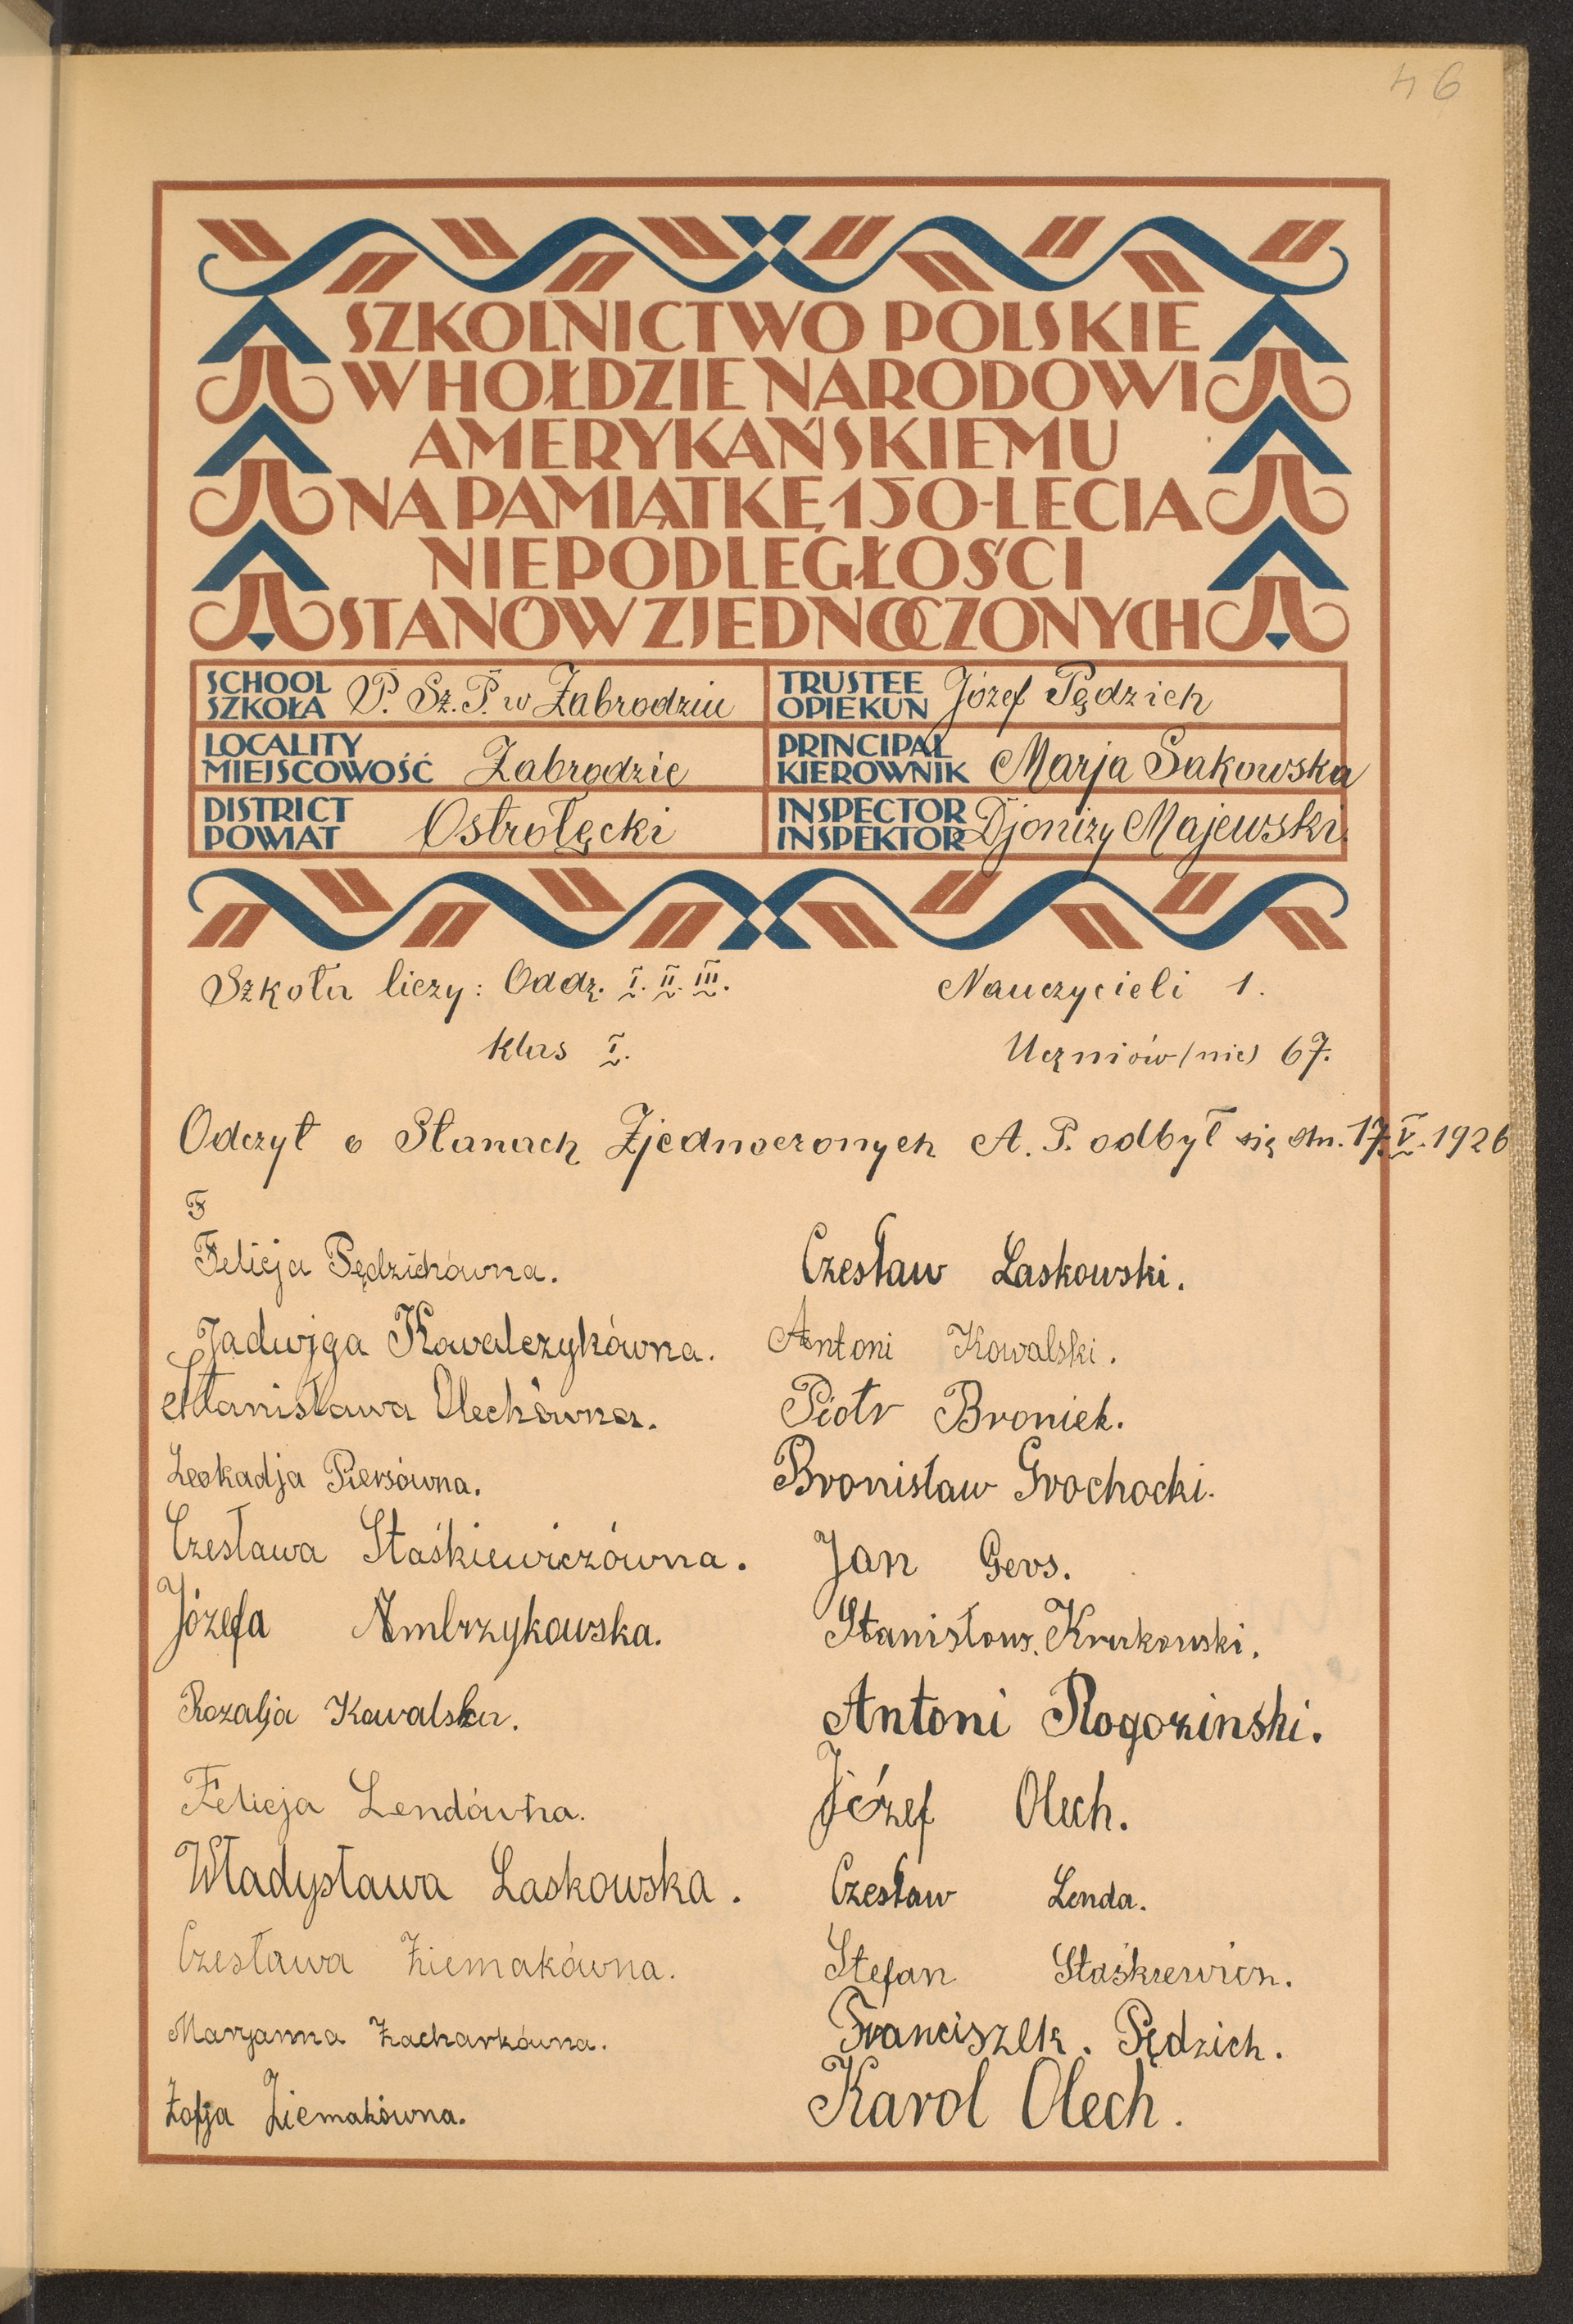 46
SZKOLNICTWO POLSKIE
W HOŁDZIE NARODOWI
AMERYKAŃSKIEMU
NA PAMIĄTKĘ 150-LECIA
NIEPODLEGŁOŚCI
STANÓW ZJEDNOCZONYCH
SCHOOL
SZKOŁA P. Sz. P. w Zabrodziu
TRUSTEE
OPIEKUN Józef Pędzich
LOCALITY
MIEJSCOWOŚĆ Zabrodzie
PRINCIPAL
KIEROWNIK Marja Sakowska
DISTRICT
POWIAT Ostrołęcki
INSPECTOR
INSPEKTOR Djonizy Majewski.
Szkoła liczy: Oddz. I. II. III. Nauczycieli 1.
klas I. Uczniów/nic) 67.
Odczyt o Stanach Zjednoczonych A. P. odbył się dn. 17.V.1926
F
Felicja Pędzichówna. Czesław Laskowski.
Jadwiga Kowalczykówna. Antoni Kowalski.
Stanisława Olechówna. Piotr Broniek.
Leokadja Piersówna. Bronisław Grochocki.
Czesława Staśkiewiczówna. Jan Gers.
Józefa Ambrzykowska. Stanisław. Krukowski.
Rozalja Kowalska. Antoni Rogozinski.
Felicja Lendówna. Józef Olech.
Władysława Laskowska. Czesław Lenda.
Czesława Ziemakówna. Stefan Staśkiewicz.
Maryanna Zacharkówna. Franciszek. Pędzich.
Zofja Ziemakówna. Karol Olech.